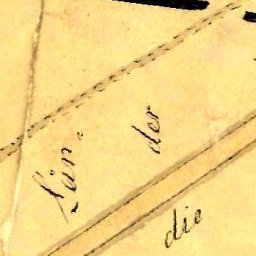 Län-
der
die